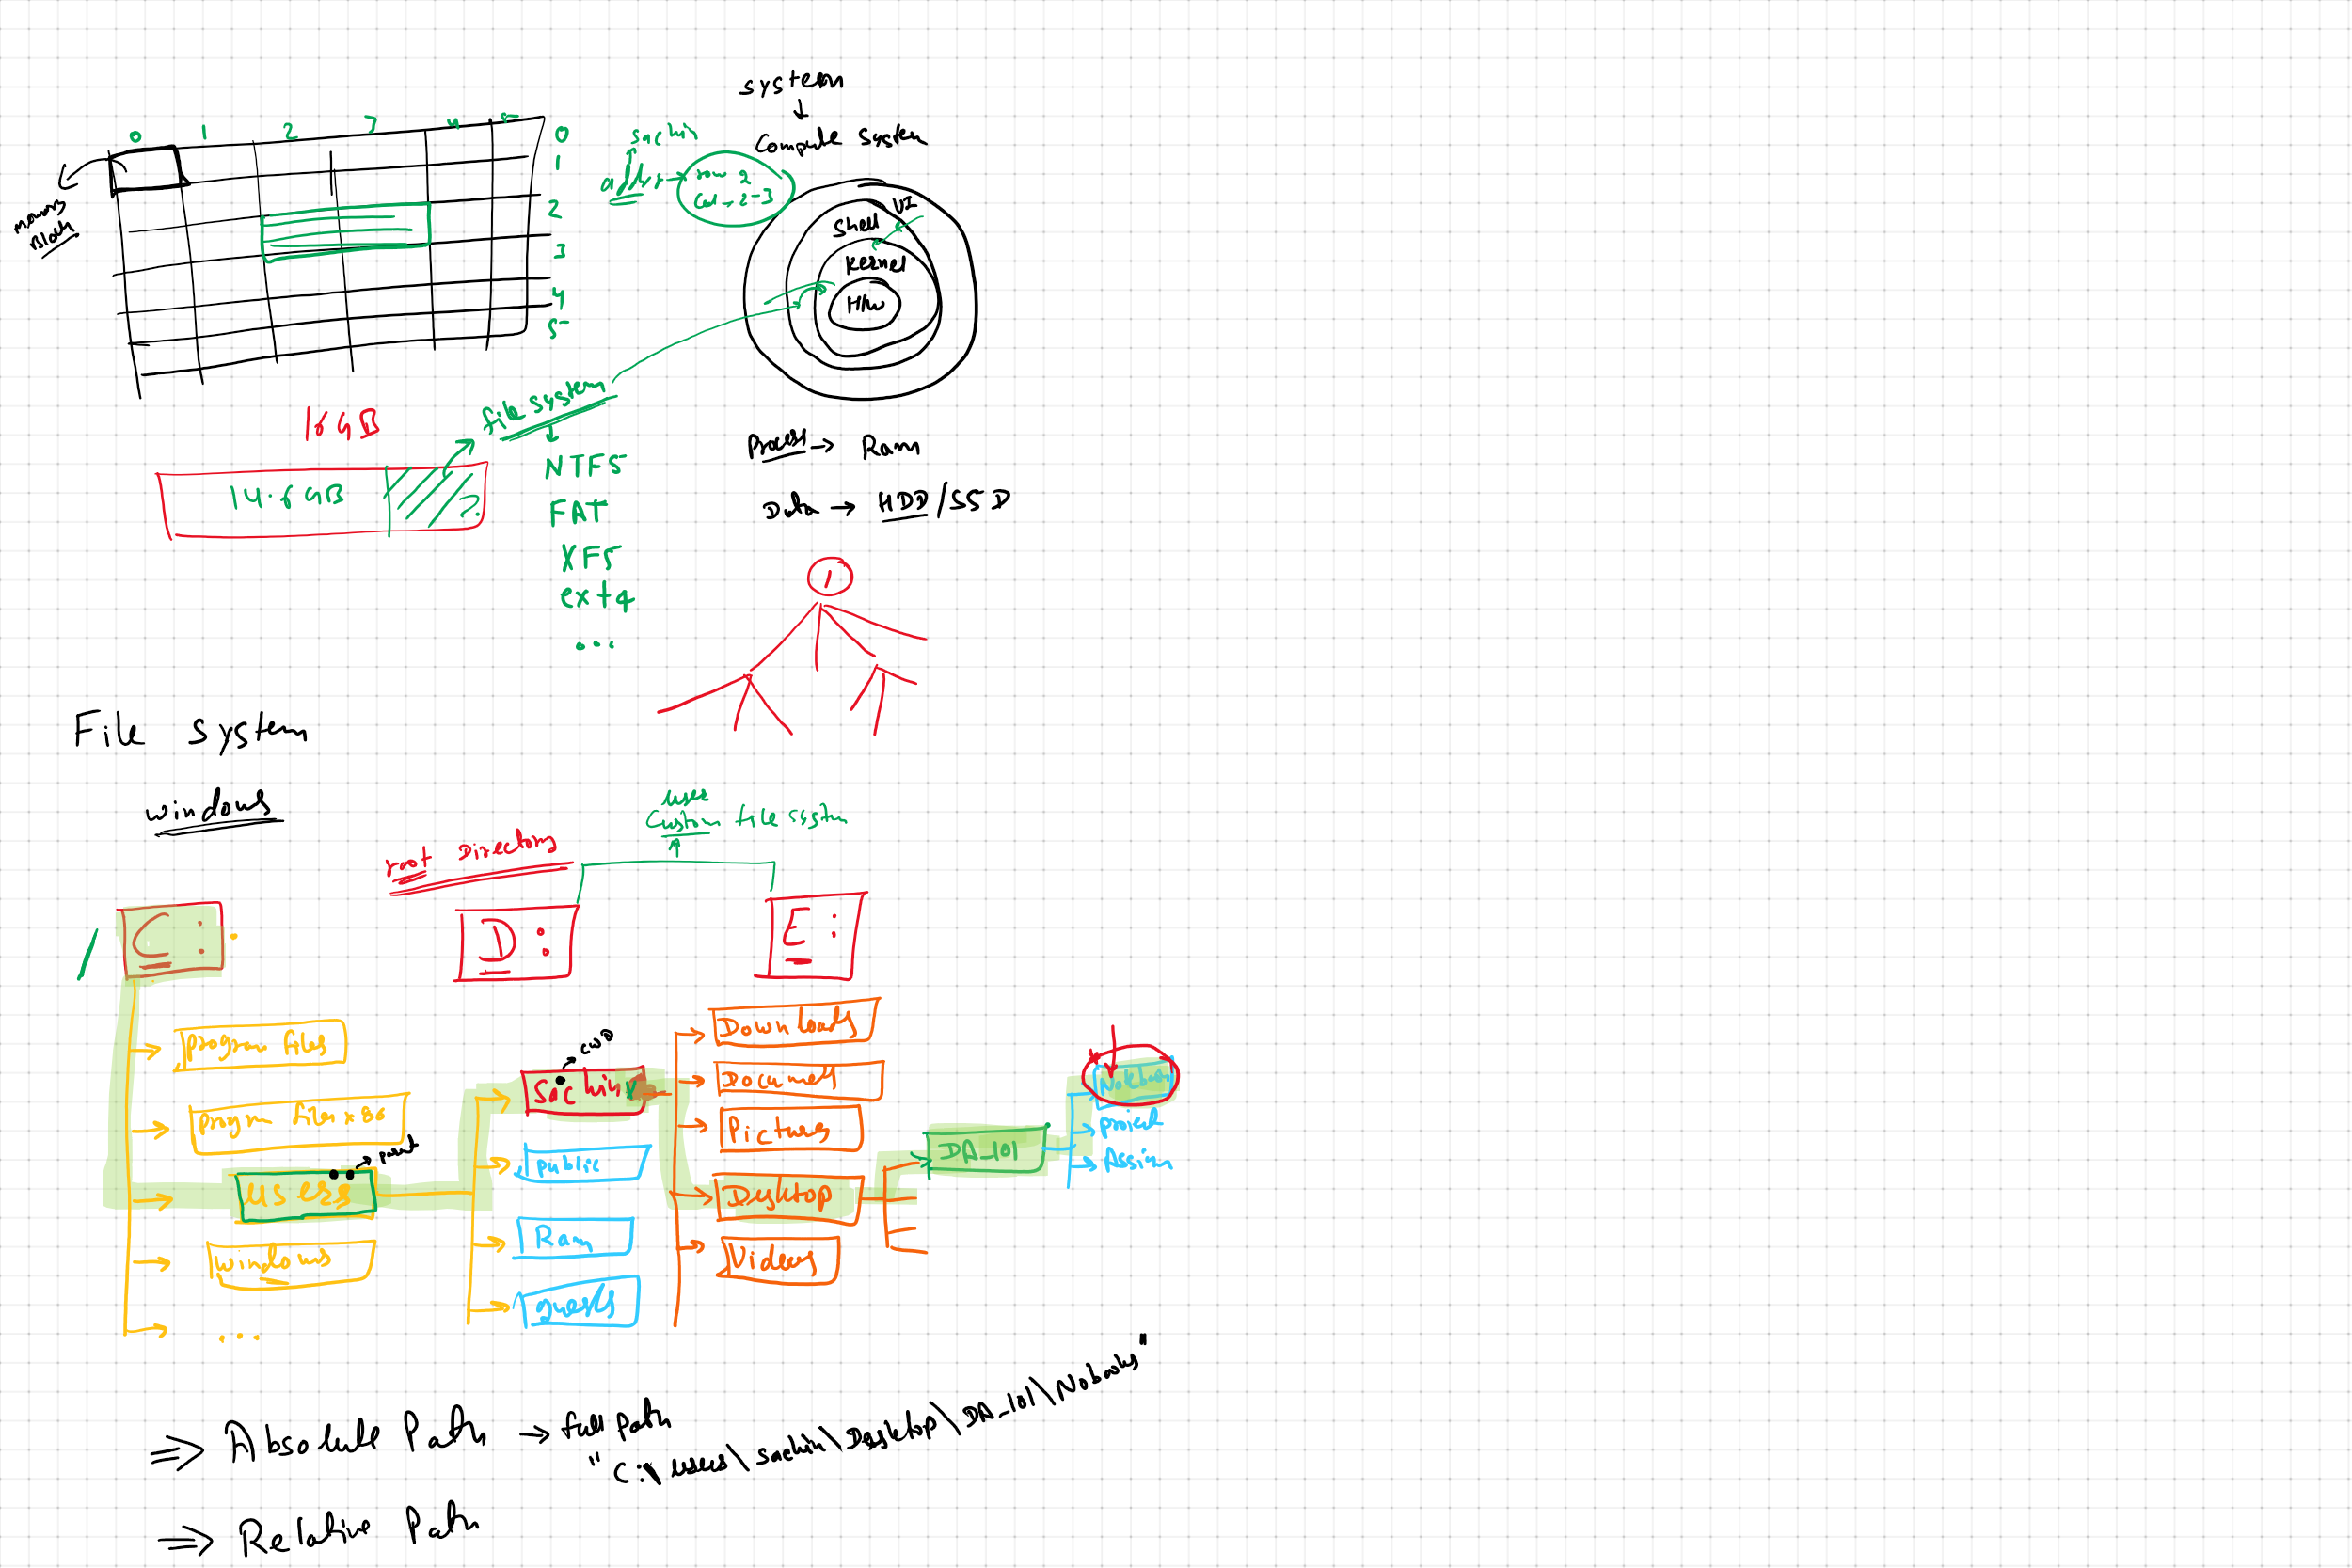 system
↓
Compute System
0 1 2 3 4 5
0
1
2
3
4
5
memory
Block
sachin
addr → row 2
Col - 2-3
UI
Shell
Kernel
H/W
16 GB
14.6 GB
?
file system
↓
NTFS
FAT
XFS
ext4
...
Process → Ram
Data → HDD/SSD
1
File system
windows
root Directory
user
Custom file systm
/
C:
D:
E:
program files
progrm files x86
.. → parent
users
windows
...
. → CWD
Sachin
public
Ram
guests
Downloads
Document
Pictures
Desktop
Videos
DA_101
Notebook
project
Assign
⇒ Absolute Path → full path
"C:\users\sachin\Desktop\DA_101\Nobooks"
⇒ Relative Path